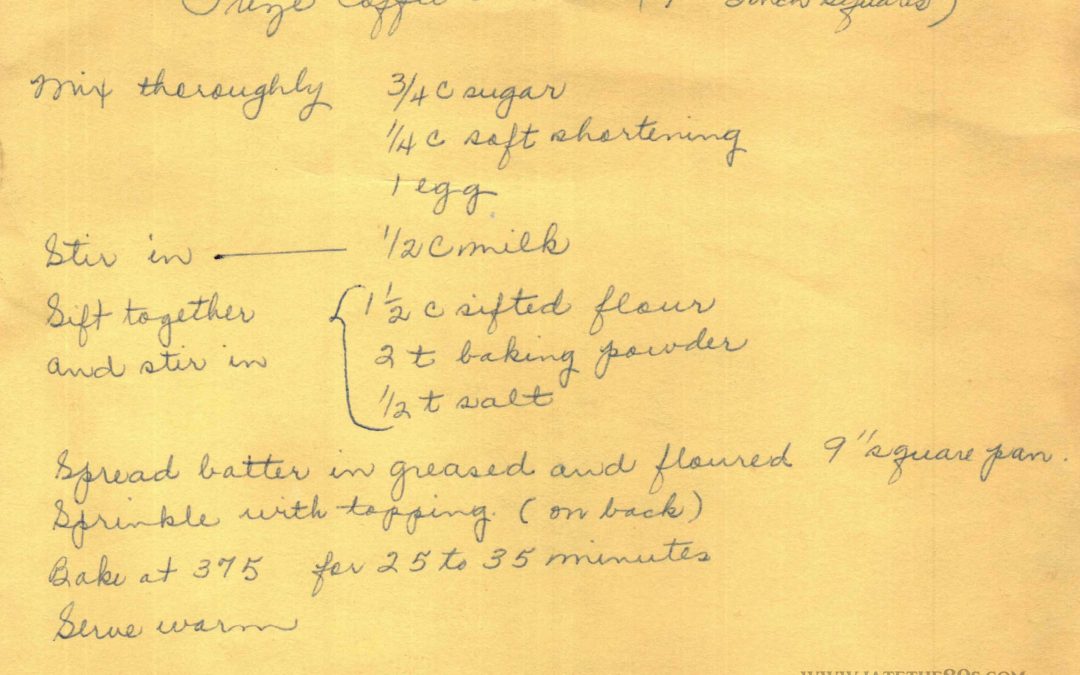 Prize Coffee (9 3 inch squares)
Mix thoroughly 3/4 c sugar
1/4 c soft shortening
1 egg
Stir in — 1/2 c milk
Sift together { 1 1/2 c sifted flour
and stir in 2 t baking powder
1/2 t salt
Spread batter in greased and floured 9" square pan.
Sprinkle with topping. (on back)
Bake at 375 for 25 to 35 minutes
Serve warm
WWW.IATETHE80S.COM